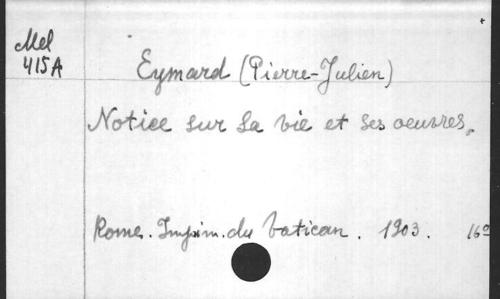 Mel
415A
Eymard (Pierre-Julien)
Notice sur sa vie et ses oeuvres.
Rome. Imprim. du Vatican. 1903. 16º